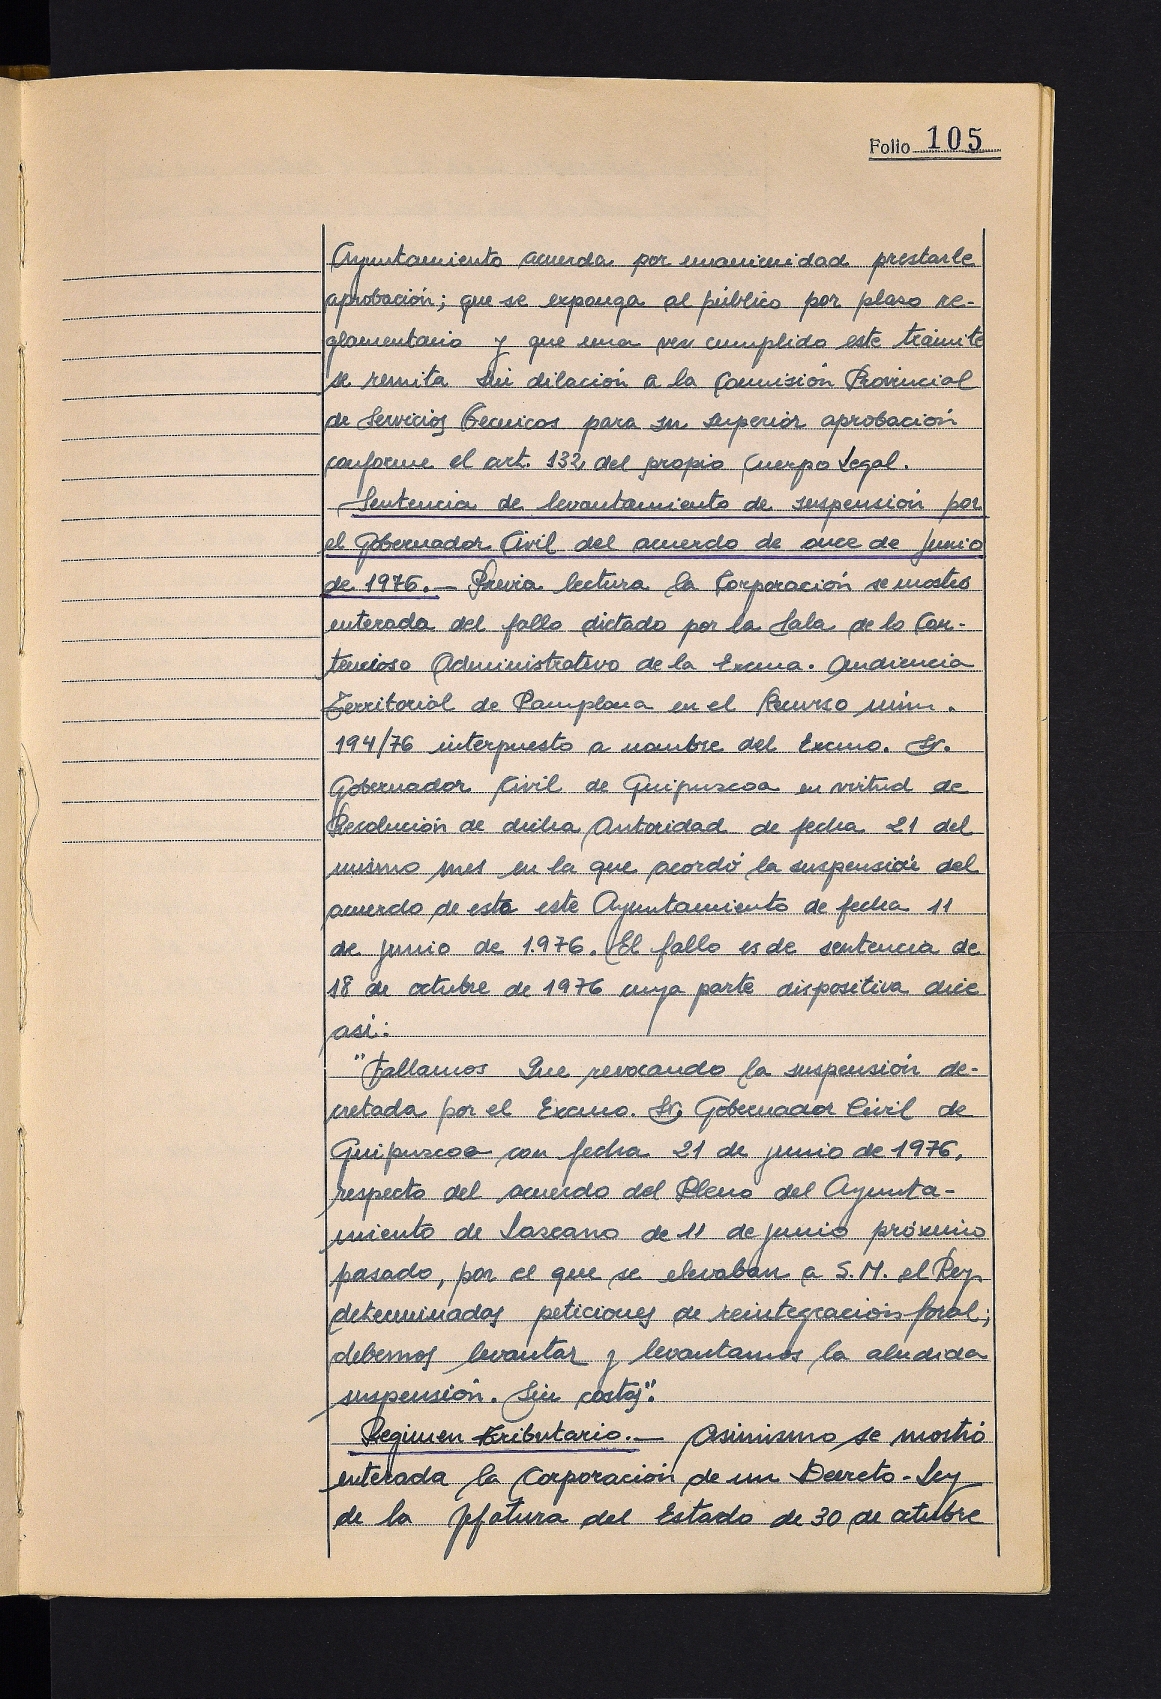 Folio 105
Ayuntamiento acuerda por unanimidad prestarle
aprobación; que se exponga al público por plaso re-
glamentario y que una vez cumplido este trámite
se remita sin dilación a la Comisión Provincial
de Servicios Técnicos para su superior aprobación
conforme el art. 132 del propio Cuerpo Legal.
Sentencia de levantamiento de suspensión por
el Gobernador Civil del acuerdo de once de Junio
de 1976.— Previa lectura la Corporación se mostró
enterada del fallo dictado por la Sala de lo Con-
tencioso Administrativo de la Excma. Audiencia
Territorial de Pamplona en el Recurso núm.
194/76 interpuesto a nombre del Excmo. Sr.
Gobernador Civil de Guipuscoa en virtud de
Resolución de dicha Autoridad de fecha 21 del
mismo mes en la que acordó la suspensión del
acuerdo de esta este Ayuntamiento de fecha 11
de junio de 1.976. El fallo es de sentencia de
18 de octubre de 1976 cuya parte dispositiva dice
así:
"Fallamos Que revocando la suspensión de-
cretada por el Excmo. Sr. Gobernador Civil de
Guipuscoa con fecha 21 de junio de 1976,
respecto del acuerdo del Pleno del Ayunta-
miento de Lascano de 11 de junio próximo
pasado, por el que se elevaban a S.M. el Rey
determinadas peticiones de reintegración foral;
debemos levantar y levantamos la aludida
suspensión. Sin costas".
Regimen Tributario.— Asimismo se mostró
enterada la Corporación de un Decreto-Ley
de la Jefatura del Estado de 30 de octubre